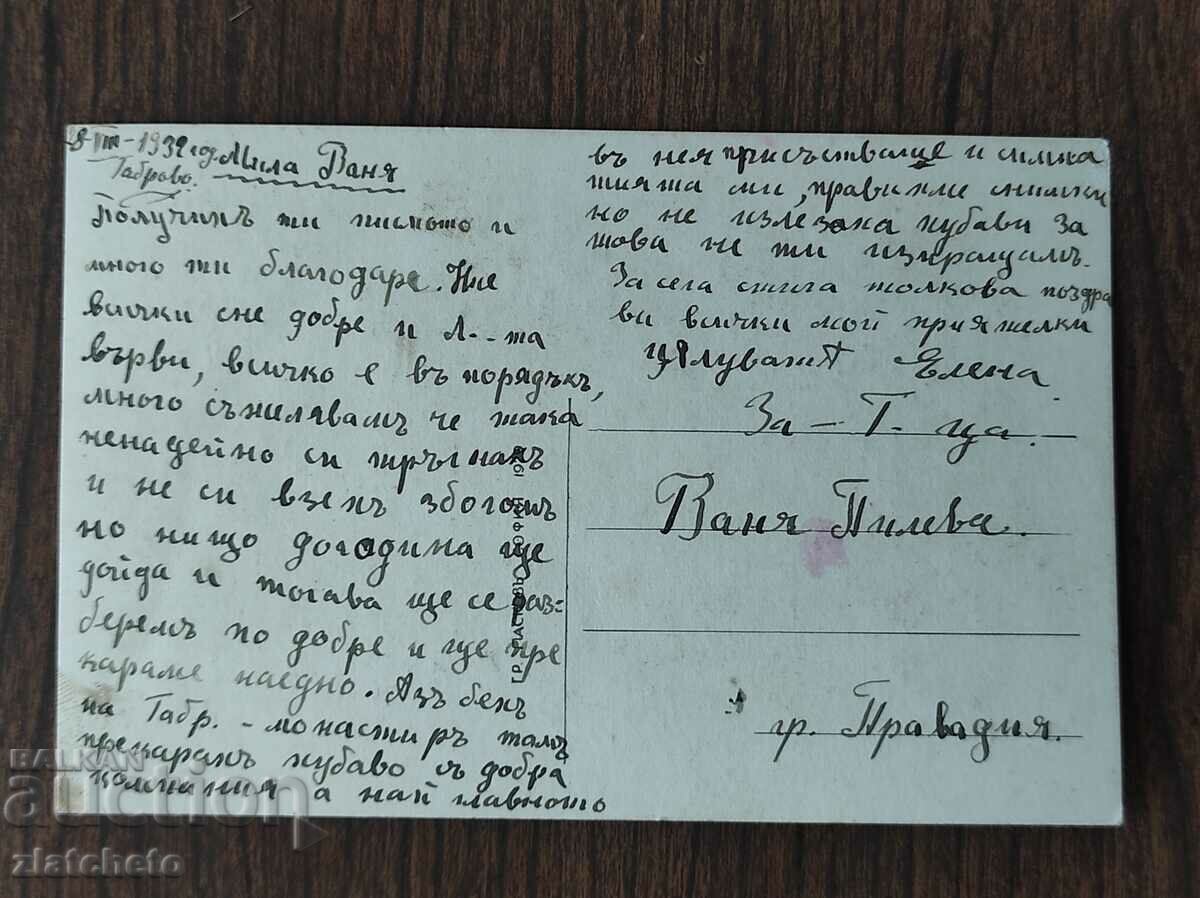 8-VIII-1932 год. Мила Ваня
Габрово.
Получихъ ти писмото и
много ти благодаре. Ние
всички сме добре и Л--та
върви, всичко е въ порядъкъ,
много съжилявамъ че така
ненадейно си тръгнахъ
и не си взехъ збогомъ
но нищо догодина ще
дойда и тогава ще се раз=
беремъ по добре и ще пре
караме наедно. Азъ бехъ
на Габр. - монастиръ тамъ
прекарахъ хубаво съ добра
компания а най главното
въ нея присъстваще и симпа
тията ми, правихме снимки
но не излезоха хубави за
това не ти изпращамъ.
За сега стига толкова поздра
ви всички мой приятелки
Цялувамъ Елена
За - Г-ца.
Ваня Пилева.
гр. Правадия.
ГР. ПАСКОВЪ СОФИЯ
BALKAN
auction
zlatcheto